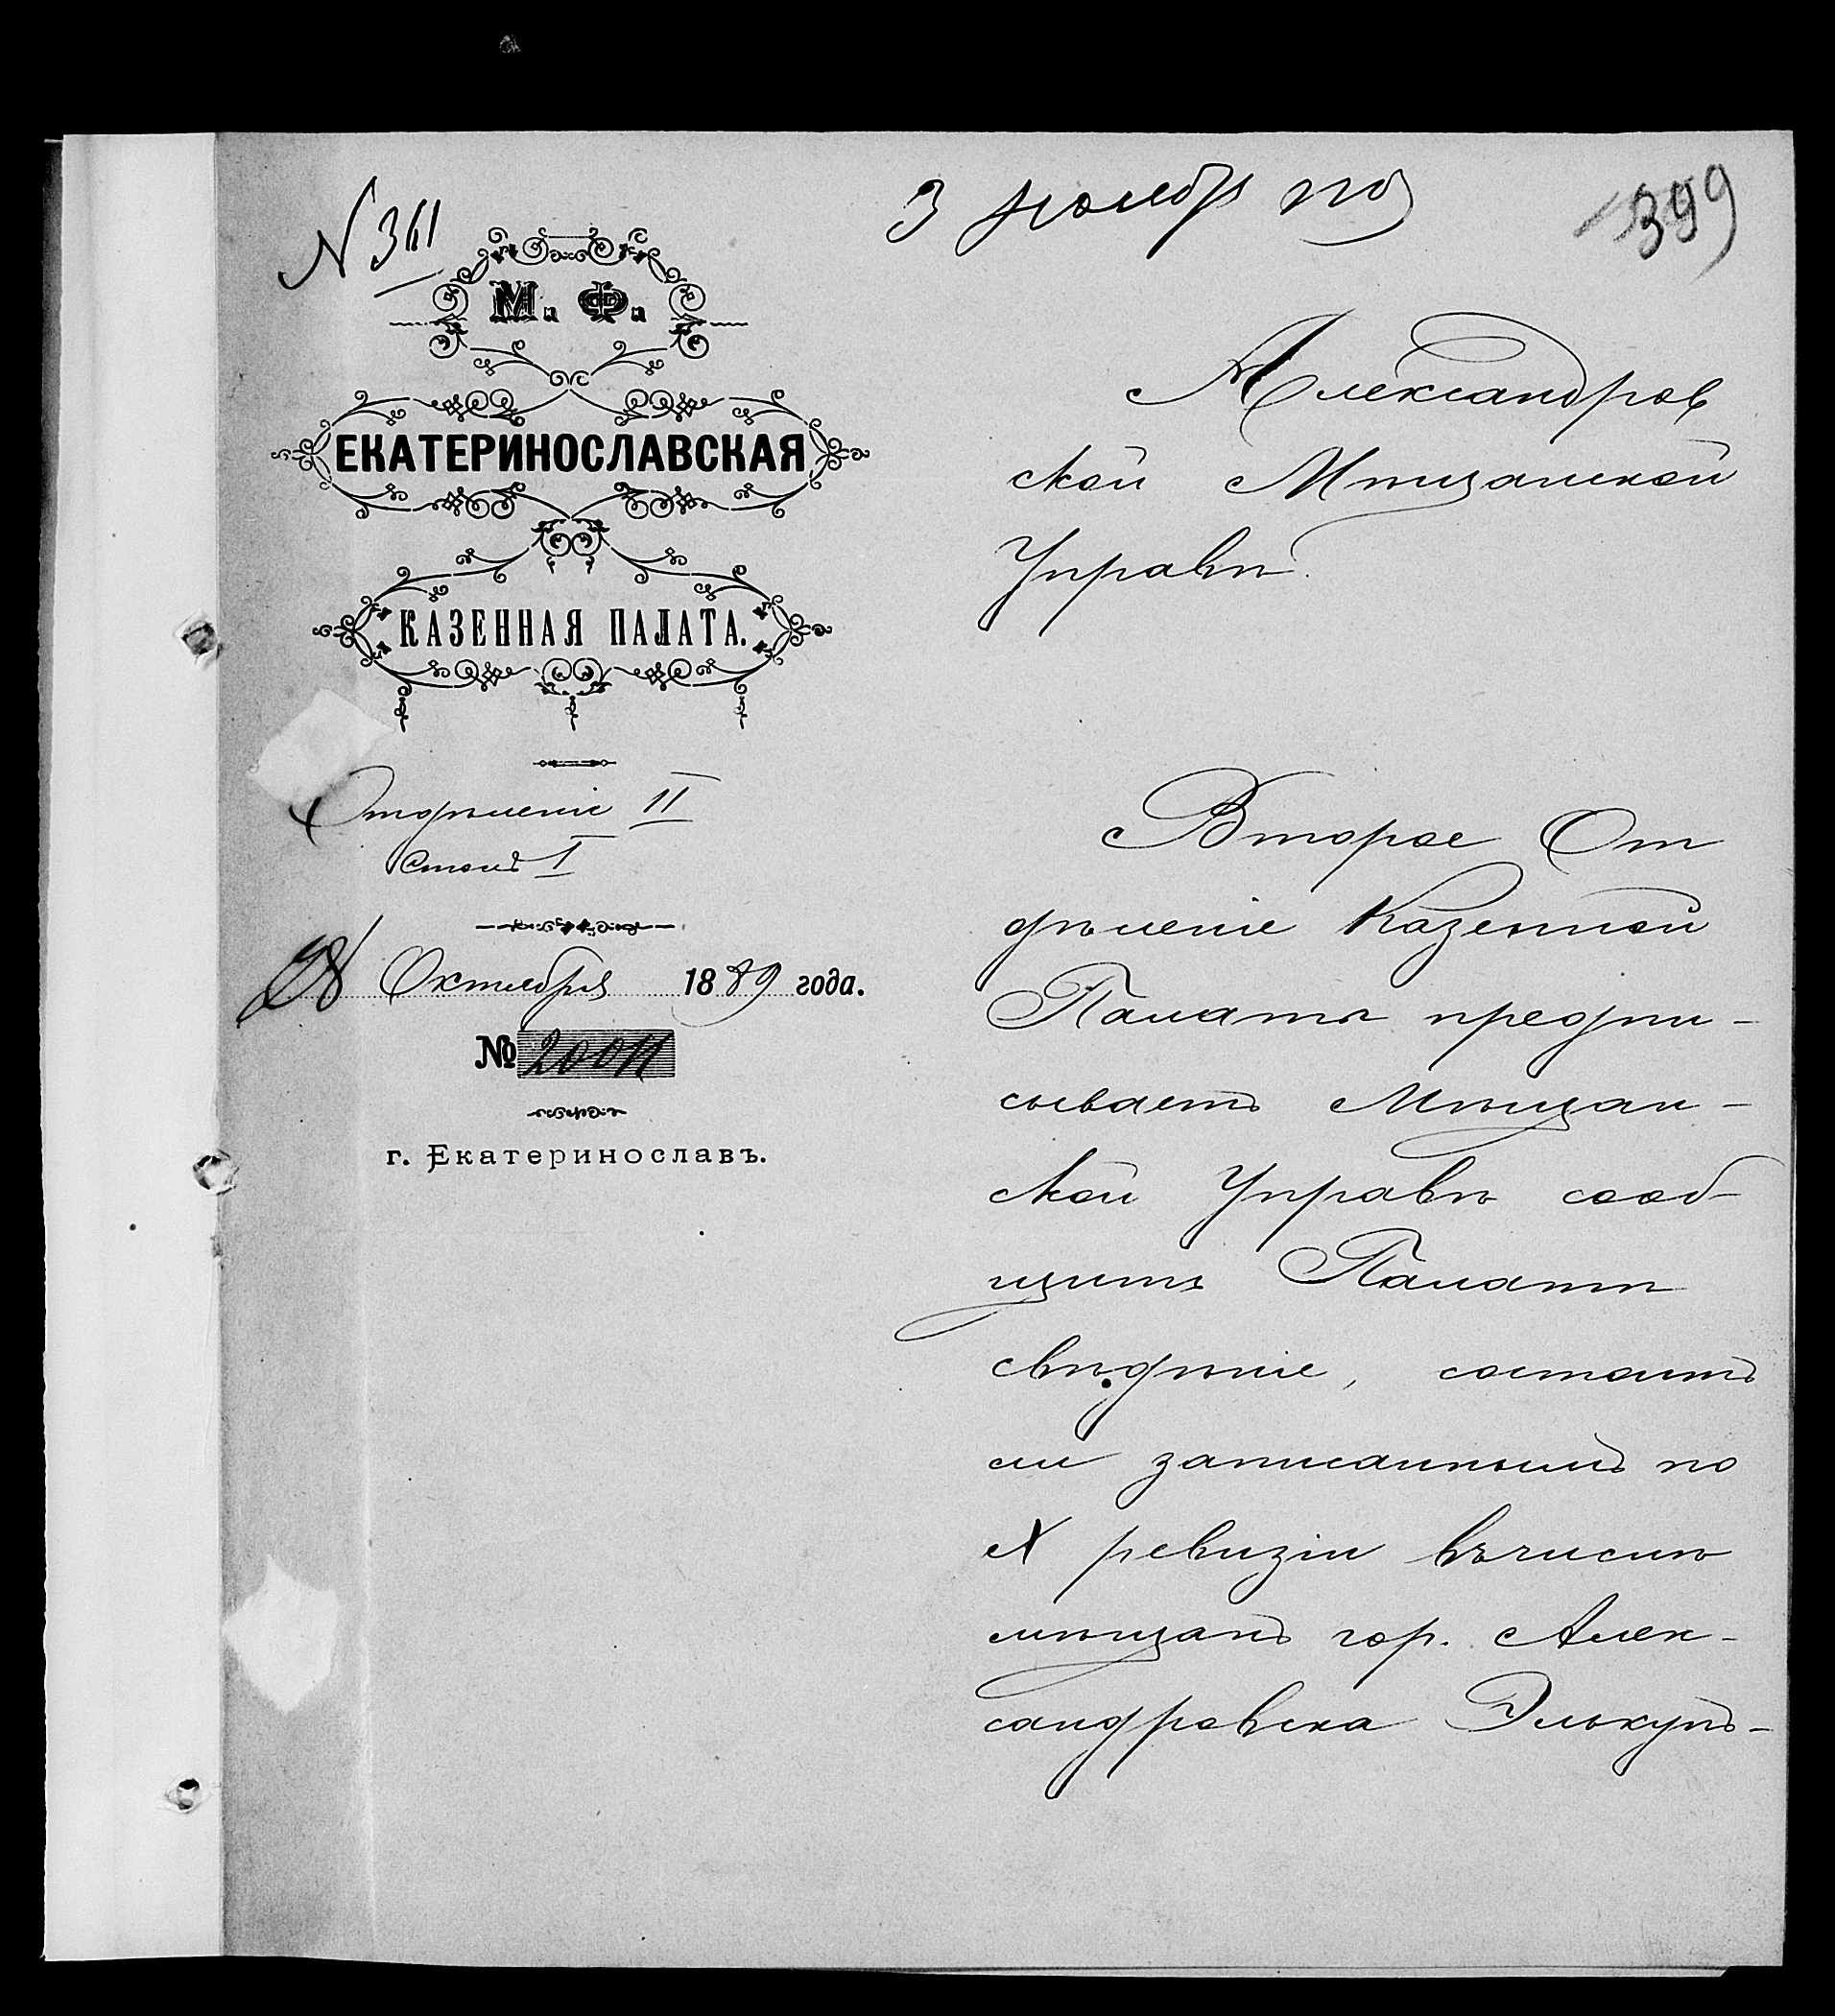 N 361
3 ноября по
399
М. Ф.
ЕКАТЕРИНОСЛАВСКАЯ
КАЗЕННАЯ ПАЛАТА.
Отдѣленіе II
Столъ I
28 Октября 1889 года.
№ 20011
г. Екатеринославъ.
Александров
ской Мѣщанской
Управѣ.
Второе От
дѣленіе Казенной
Палаты предпи-
сываетъ Мѣщан-
ской Управѣ сооб-
щить Палатѣ
свѣдѣніе, состоитъ
ли записаннымъ по
X ревизіи въ числѣ
мѣщанъ гор. Алек-
сандровска Элькунъ-